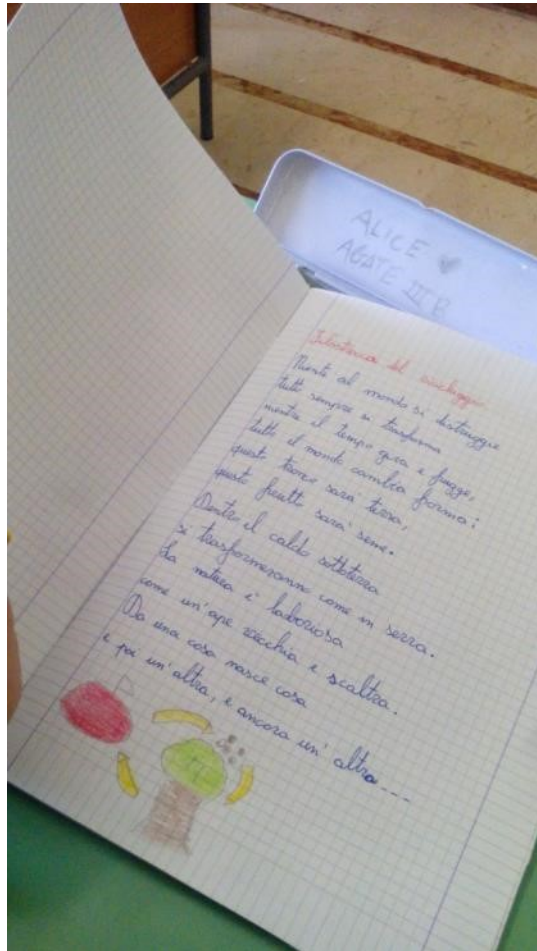 ALICE ♥
AGATE III B
Filastrocca del riciclaggio
Niente al mondo si distrugge
tutto sempre si trasforma
mentre il tempo gira e fugge,
tutto il mondo cambia forma:
questo tronco sarà terra,
questo frutto sarà seme.
Dentro il caldo sottoterra
si trasformeranno come in serra.
La natura è laboriosa
come un'ape vecchia e scaltra.
Da una cosa nasce cosa
e poi un'altra, e ancora un'altra...